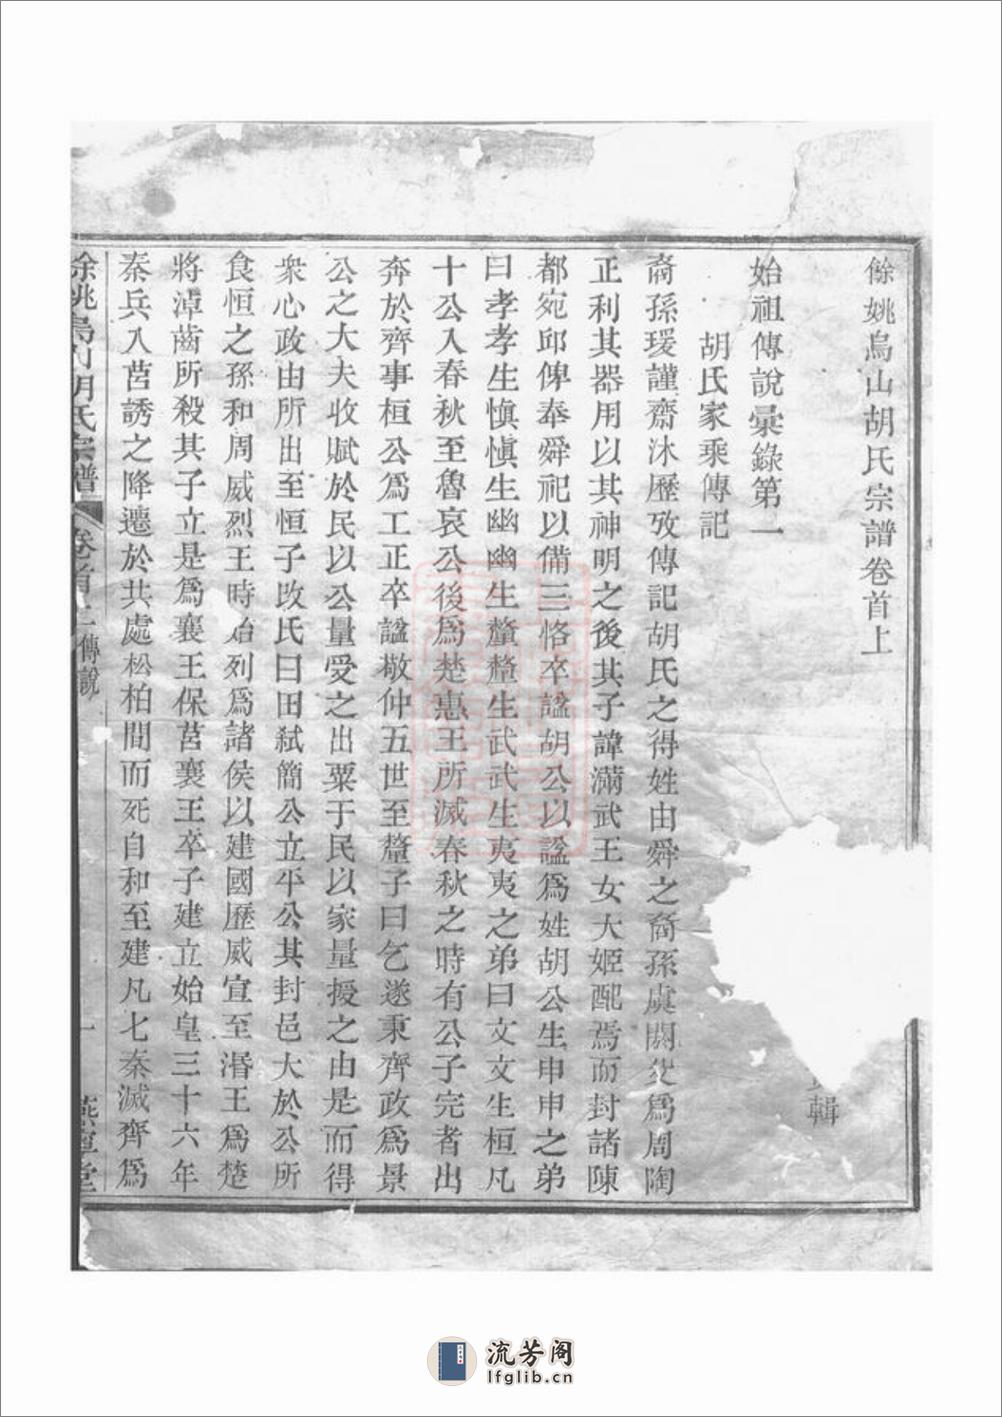 餘姚烏山胡氏宗譜卷首上
輯
始祖傳說彙錄第一
胡氏家乘傳記
裔孫瑗謹齋沐歷攷傳記胡氏之得姓由舜之裔孫虞閼父爲周陶
正利其器用以其神明之後其子諱滿武王女大姬配焉而封諸陳
都宛邱俾奉舜祀以備三恪卒諡胡公以諡爲姓胡公生申申之弟
曰孝孝生愼愼生幽幽生釐釐生武武生夷夷之弟曰文文生桓凡
十公入春秋至魯哀公後爲楚惠王所滅春秋之時有公子完者出
奔於齊事桓公爲工正卒諡敬仲五世至釐子曰乞遂秉齊政爲景
公之大夫收賦於民以公量受之出粟于民以家量授之由是而得
衆心政由所出至恒子攺氏曰田弑簡公立平公其封邑大於公所
食恒之孫和周威烈王時始列爲諸侯以建國歷威宣至湣王爲楚
將淖齒所殺其子立是爲襄王保莒襄王卒子建立始皇三十六年
秦兵入莒誘之降遷於共處松柏間而死自和至建凡七秦滅齊爲
餘姚烏山胡氏宗譜 卷首上 傳說 一
流芳阁
lfglib.cn